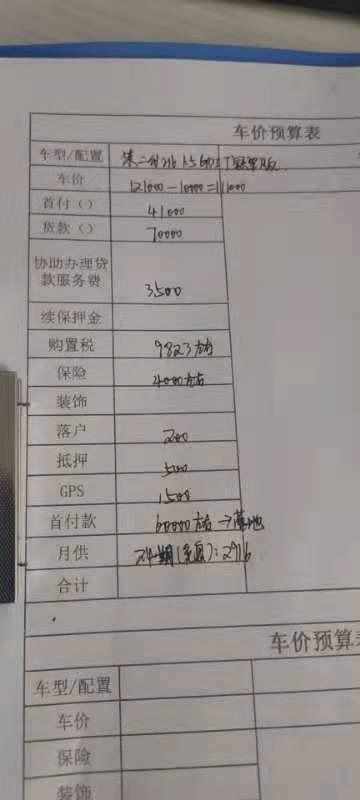 车价预算表
车型/配置 第二代
车价 121000-10000=111000
首付（） 41000
货款（） 70000
协助办理贷
款服务费 3500
续保押金
购置税 9823左右
保险 4000左右
装饰
落户 200
抵押 500
GPS 1500
首付款 60000左右→落地
月供 24期(免息):2916
合计
车价预算表
车型/配置
车价
保险
装饰